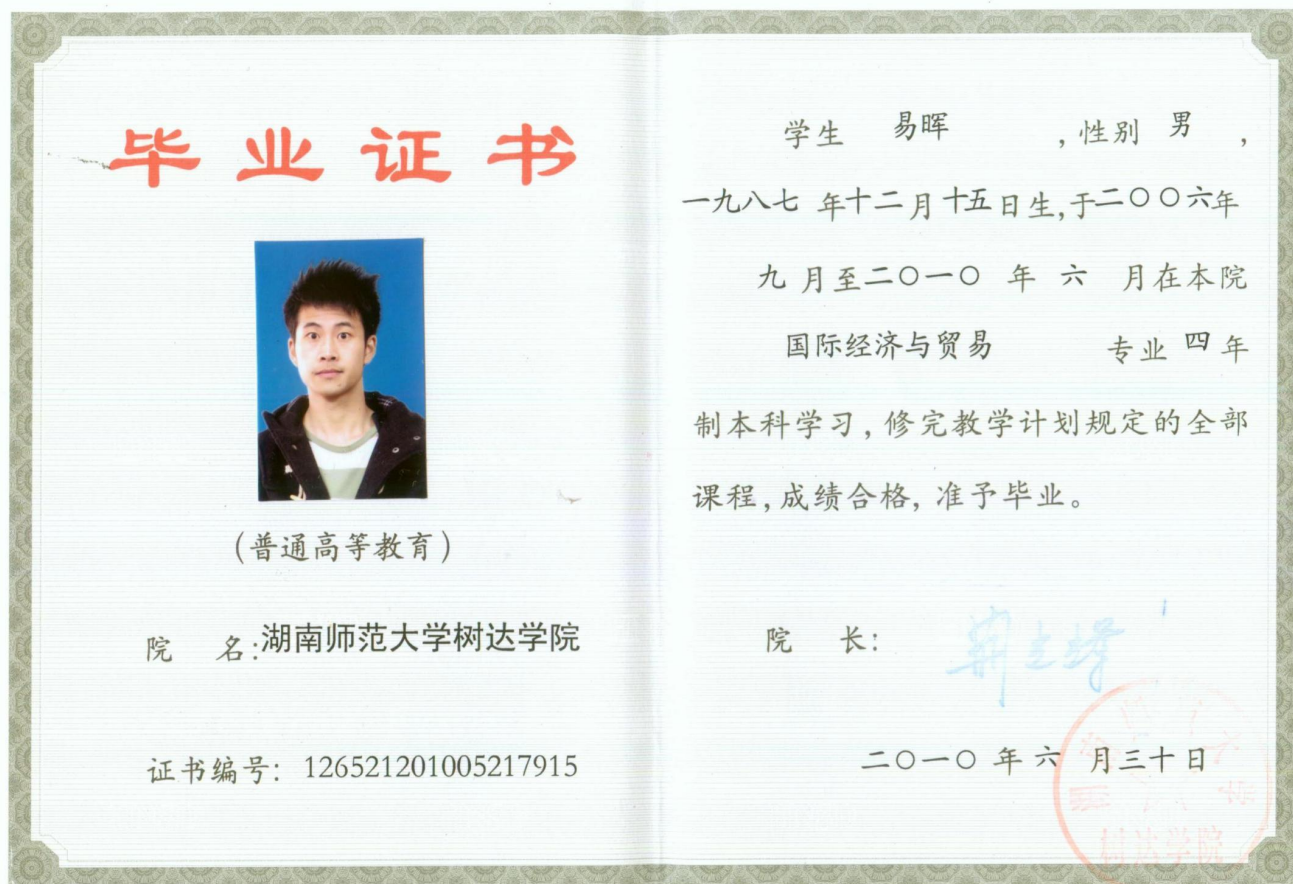 毕业证书
(普通高等教育)
院 名:湖南师范大学树达学院
证书编号: 126521201005217915
学生 易晖 ,性别 男 ,
一九八七 年十二月十五日生,于二〇〇六年
九 月至二〇一〇 年 六 月在本院
国际经济与贸易 专业 四 年
制本科学习,修完教学计划规定的全部
课程,成绩合格,准予毕业。
院 长:
二〇一〇 年 六 月三十日
树达学院